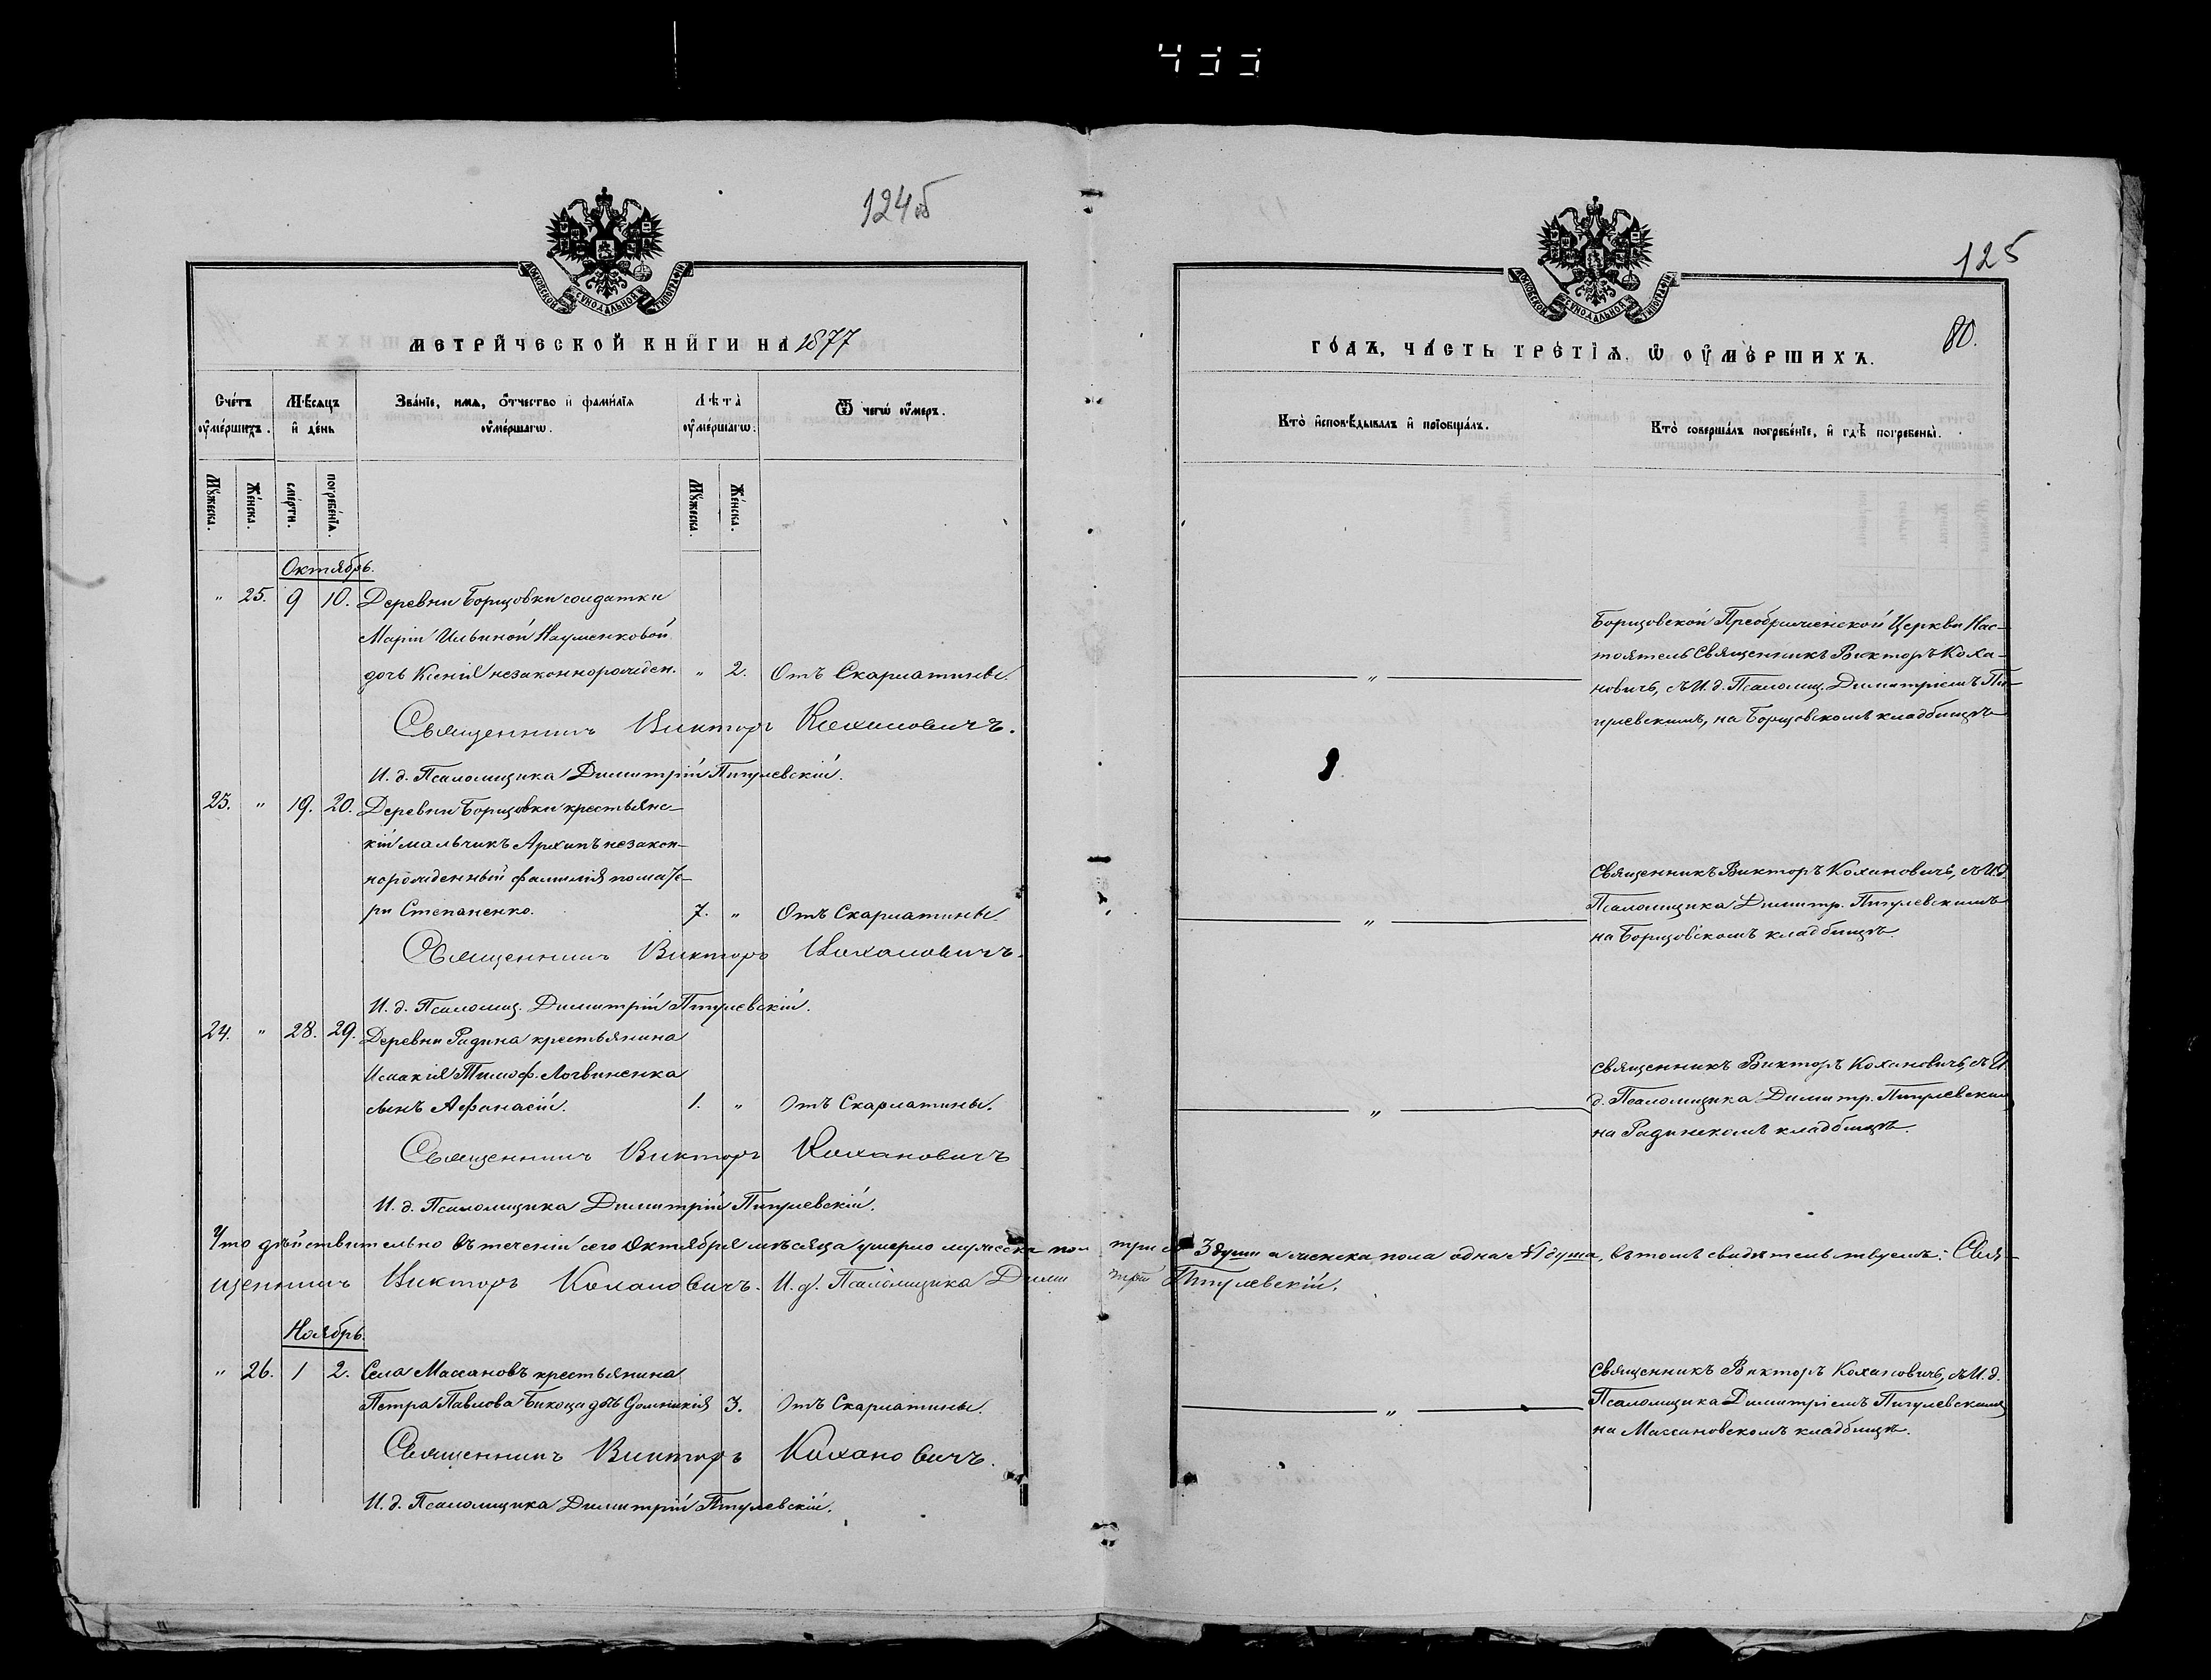 433
124об
МОСКОВСКОЙ СѴНОДАЛЬНОЙ ТИПОГРАФІИ
МЕТРИЧЕСКОЙ КНИГИ НА 1877
Счетъ умершихъ.
Мѣсяцъ и день
Званіе, имя, отчество и фамилія умершагѡ.
Лѣта умершагѡ.
Ѿ чегѡ умеръ.
Мужеска.
Женска.
смерти.
погребенія.
Мужеска.
Женска.
Октябрь.
" 25. 9 10. Деревни Борщовки солдатки
Маріи Ильиной Науменковой
дочь Ксенія незаконнорожден. " 2. Отъ Скарлатины.
Священникъ Викторъ Кохановичъ.
И. д. Псаломщика Димитрій Пигулевскій.
23. " 19. 20. Деревни Борщовки крестьянс-
кій мальчикъ Архипъ незакон-
норожденный фамилія по мате-
ри Степаненко. 7. " Отъ Скарлатины.
Священникъ Викторъ Кохановичъ.
И. д. Псаломщ. Димитрій Пигулевскій.
24. " 28. 29. Деревни Радина крестьянина
Исаакія Тимоф. Логвиненка
сынъ Афанасій. 1. " Отъ Скарлатины.
Священникъ Викторъ Кохановичъ
И. д. Псаломщика Димитрій Пигулевскій.
Что дѣйствительно въ теченіи сего Октября мѣсяца умерло мужеска пол три 3 души а женска пола одна 1 душа, въ томъ свидѣтельствуемъ: Свя-
щенникъ Викторъ Кохановичъ. И. д. Псаломщика Димитрій Пигулевскій.
Ноябрь.
" 26. 1 2. Села Массановъ крестьянина
Петра Павлова дочь Домникія 3. Отъ Скарлатины.
Священникъ Викторъ Кохановичъ.
И. д. Псаломщика Димитрій Пигулевскій.
125
МОСКОВСКОЙ СѴНОДАЛЬНОЙ ТИПОГРАФІИ
80.
ГОДЪ, ЧАСТЬ ТРЕТІЯ, Ѡ УМЕРШИХЪ.
Кто исповѣдывалъ и пріобщалъ.
Кто совершалъ погребеніе, и гдѣ погребены.
Борщовской Преображенской Церкви Нас-
тоятель Священникъ Викторъ Коха-
новичь, съ И. д. Псаломщ. Димитріемъ Пи-
гулевскимъ, на Борщовскомъ кладбищѣ
"
Священникъ Викторъ Кохановичь, съ И. д.
Псаломщика Димитр. Пигулевскимъ
на Борщовскомъ кладбищѣ.
"
Священникъ Викторъ Кохановичь, съ И.
д. Псаломщика Димитр. Пигулевским
на Радинскомъ кладбищѣ.
"
Священникъ Викторъ Кохановичь, съ И. д.
Псаломщика Димитріемъ Пигулевскимъ
на Массановскомъ кладбищѣ.
"